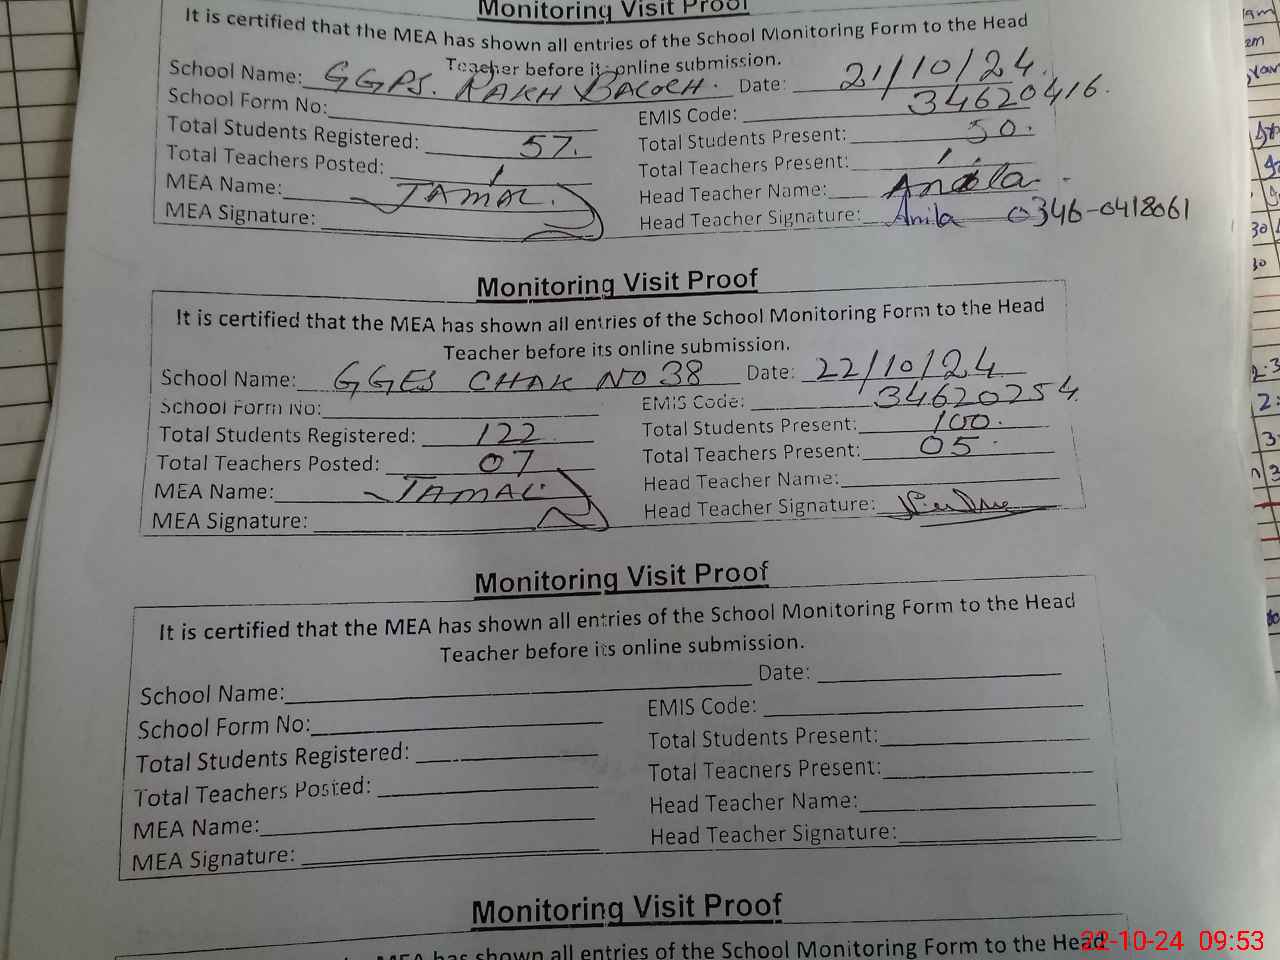 Monitoring Visit Proof
It is certified that the MEA has shown all entries of the School Monitoring Form to the Head
Teacher before its online submission.
School Name: GGPS. RAKH BALOCH. Date: 21/10/24.
School Form No: EMIS Code: 34620416.
Total Students Registered: 57. Total Students Present: 50.
Total Teachers Posted: 1 Total Teachers Present: 1.
MEA Name: JAMAL. Head Teacher Name: Anila
MEA Signature: Head Teacher Signature: Anila 0346-0418061
Monitoring Visit Proof
It is certified that the MEA has shown all entries of the School Monitoring Form to the Head
Teacher before its online submission.
School Name: GGES CHAK NO 38 Date: 22/10/24
School Form No: EMIS Code: 34620254
Total Students Registered: 122 Total Students Present: 100.
Total Teachers Posted: 07 Total Teachers Present: 05.
MEA Name: JAMAL. Head Teacher Name:
MEA Signature: Head Teacher Signature:
Monitoring Visit Proof
It is certified that the MEA has shown all entries of the School Monitoring Form to the Head
Teacher before its online submission.
School Name: Date:
School Form No: EMIS Code:
Total Students Registered: Total Students Present:
Total Teachers Posted: Total Teachers Present:
MEA Name: Head Teacher Name:
MEA Signature: Head Teacher Signature:
Monitoring Visit Proof
MEA has shown all entries of the School Monitoring Form to the Head
22-10-24 09:53